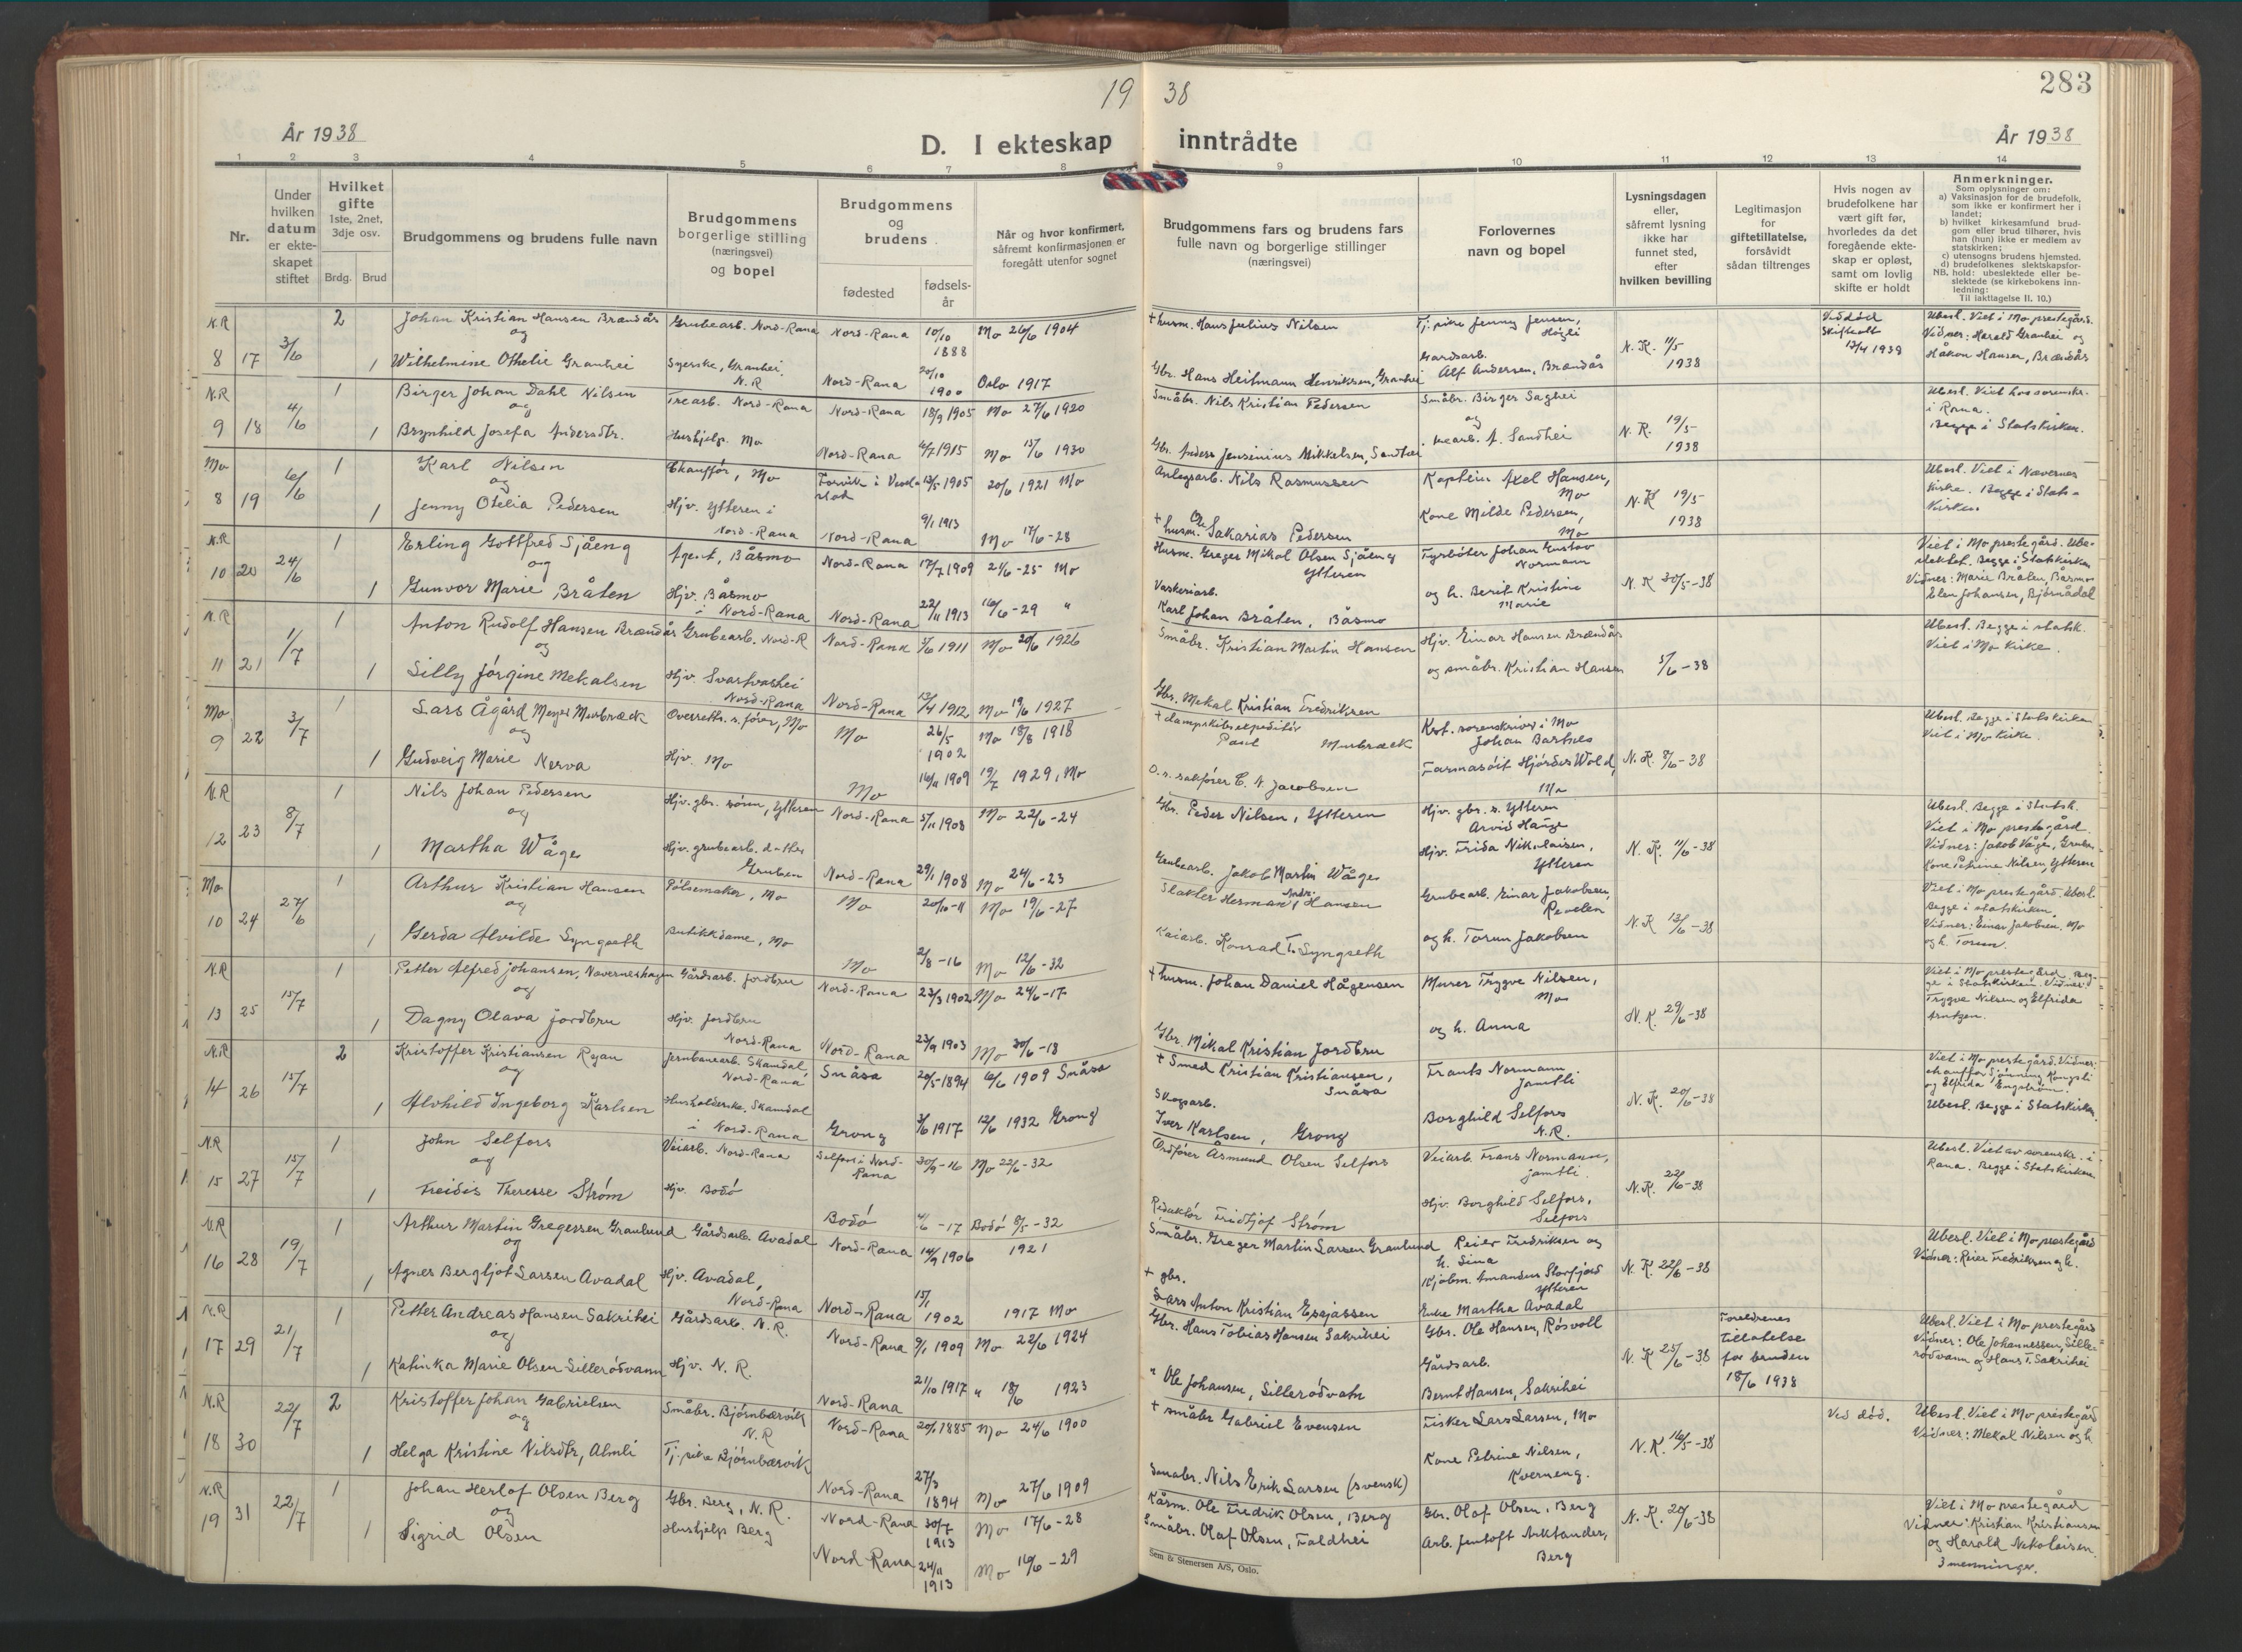 19 38
283
År 1938
D. I ekteskap inntrådte
År 1938
1 2 3 4 5 6 7 8 9 10 11 12 13 14
Nr.
Under hvilken datum er ekteskapet stiftet
Hvilket gifte 1ste, 2net, 3dje osv.
Brdg. Brud
Brudgommens og brudens fulle navn
Brudgommens borgerlige stilling (næringsvei) og bopel
Brudgommens og brudens
fødested
fødselsår
Når og hvor konfirmert, såfremt konfirmasjonen er foregått utenfor sognet
Brudgommens fars og brudens fars fulle navn og borgerlige stillinger (næringsvei)
Forlovernes navn og bopel
Lysningsdagen eller, såfremt lysning ikke har funnet sted, efter hvilken bevilling
Legitimasjon for giftetillatelse, forsåvidt sådan tiltrenges
Hvis nogen av brudefolkene har vært gift før, hvorledes da det foregående ekteskap er opløst, samt om lovlig skifte er holdt
Anmerkninger.
Som oplysninger om:
a) Vaksinasjon for de brudefolk, som ikke er konfirmert her i landet;
b) hvilket kirkesamfund brudgom eller brud tilhører, hvis han (hun) ikke er medlem av statskirken;
c) utensogns brudens hjemsted.
d) brudefolkenes slektskapsforhold: ubeslektede eller beslektede (se kirkebokens innledning:
NB. Til iakttagelse II. 10.)
N.R 8 17 3/6 2 Johan Kristian Hansen Brændås Grubearb. Nord-Rana Nord-Rana 10/10 1888 Mo 26/6 1904 + husm. Hans Julius Nilsen Tj. pike Jenny Jensen, Høgli N.R. 11/5 1938 Ved død Skifteatt 12/4 1938 Ubesl. Viet i Mo prestegård.
og
1 Wilhelmine Othelie Granhei Syerske, Granhei, N.R Nord-Rana 20/10 1900 Oslo 1917 Gbr. Hans Heitmann Henriksen, Granhei Gardsarb. Alf Andersen, Brændås Vidner: Harald Granhei og Håkon Hansen, Brændås
N.R 9 18 4/6 1 Birger Johan Dahl Nilsen Trearb. Nord-Rana Nord-Rana 18/9 1905 Mo 27/6 1920 Småbr. Nils Kristian Pedersen Småbr. Birger Saghei N.R. 19/5 1938 Ubesl. Viet hos sorenskr. i Rana.
og
1 Brynhild Josefa Andersdtr. Hushjelp. Mo Nord-Rana 4/7 1915 Mo 15/6 1930 Gbr. Anders Jensenius Mikkelsen, Sandhei A. Sandhei Begge i Statskirken.
Mo 8 19 6/6 1 Karl Nilsen Chauffør, Mo 13/5 1905 20/6 1921 Mo Anlegsarb. Nils Rasmussen Kaptein Axel Hansen, Mo N.R 19/5 1938 Ubesl. Viet i Nævernes kirke. Begge i Statskirken.
og
1 Jenny Otelia Pedersen Hjv. Ytteren i Nord-Rana Nord-Rana 9/1 1913 Mo 17/6-28 + husm. Ole Sakarias Pedersen Kone Milde Pedersen, Mo
N.R 10 20 24/6 1 Erling Gottfred Sjåeng Agent, Båsmo Nord-Rana 17/7 1909 21/6-25 Mo Husm. Greger Mikal Olsen Sjåeng Ytteren Fyrbøter Johan Gustav Normann N.R 30/5-38 Viet i Mo prestegård. Ubeslektet. Begge i Statskirken
og
1 Gunvor Marie Bråten Hjv. Båsmo i Nord-Rana Nord-Rana 22/11 1913 16/6-29 " Vaskeriarb. Karl Johan Bråten, Båsmo og h. Berit Kristine Marie Vidner: Marie Bråten, Båsmo Elen Johansen, Bjørnådal
N.R 11 21 1/7 1 Anton Rudolf Hansen Brændås Grubearb. Nord-R Nord-Rana 1/6 1911 Mo 20/6 1926 Småbr. Kristian Martin Hansen Hjv. Einar Hansen Brændås 5/6-38 Ubesl. Begge i statsk. Viet i Mo kirke.
og
1 Silly Jørgine Mekalsen Hjv. Svartvashei Nord-Rana Nord-Rana 13/4 1912 Mo 19/6 1927 Gbr. Mekal Kristian Fredriksen og småbr. Kristian Hansen
Mo 9 22 3/7 1 Lars Ågård Meyer Mosbræck Overretts. s. fører, Mo Mo 26/5 1902 Mo 18/8 1918 + dampskibsekspeditør Paul Mosbræck Kst. sorenskriver i Mo Johan Bartnes N.R. 8/6-38 Ubesl. Begge i Statskirken Viet i Mo kirke.
og
1 Gudveig Marie Nerva Hjv. Mo Mo 16/11 1909 19/7 1929, Mo O.r. sakfører C. N. Jacobsen Farmasøit Hjørdis Wold, Mo
N.R 12 23 8/7 1 Nils Johan Pedersen Hjv. gbr. sønn, Ytteren Nord-Rana 5/11 1908 Mo 22/6-24 Gbr. Peder Nilsen, Ytteren Hjv. gbr. s. Ytteren Arvid Hauge N.R. 11/6-38 Ubesl. Begge i Statsk. Viet i Mo prestegård.
og
1 Martha Wåge Hjv. grubearb. datter Gruben Nord-Rana 29/1 1908 Mo 24/6-23 Grubearb. Jakob Martin Wåge Hjv. Frida Nikolaisen, Ytteren Vidner: Jakob Våge, Gruben Kone Petrine Nilsen, Ytteren
Mo 10 24 27/6 1 Arthur Kristian Hansen Pølsemaker, Mo Mo 20/10-11 Mo 19/6-27 Slakter Herman Andr. Hansen Grubearb. Einar Jakobsen, Revelen N.R 13/6-38 Viet i Mo prestegård. Ubesl. Begge i statskirken.
og
1 Gerda Alvilde Syngseth Butikkdame, Mo Mo 2/8-16 Mo 12/6-32 Kaiarb. Konrad T. Syngseth og h. Torun Jakobsen Vidner: Einar Jakobsen. Mo og h. Torun.
N.R 13 25 15/7 1 Petter Alfred Johansen, Naverneshagen Gårdsarb. Jordbru Nord-Rana 23/3 1902 Mo 24/6-17 + husm. Johan Daniel Hågensen Murer Trygve Nilsen, Mo N.R. 29/6-38 Viet i Mo prestegård. Begge i Statskirken. Vidner:
og
1 Dagny Olava Jordbru Hjv. Jordbru Nord-Rana Nord-Rana 23/9 1903 Mo 30/6-18 Gbr. Mikal Kristian Jordbru og h. Anna Trygve Nilsen og Elfrida Arntzen.
N.R 14 26 15/7 2 Kristoffer Kristiansen Ryan Jernbanearb. Skamdal, Nord-Rana Snåsa 20/5-1894 6/6 1909 Snåsa + Smed Kristian Kristiansen, Snåsa Frants Normann. Jamtli N.R. 20/6-38 Viet i Mo prestegård. Vidner: chauffør Sjønning Kongsli og Elfrida Engstrøm.
og
1 Alvhild Ingeborg Karlsen Husholderske. Skamdal i Nord-Rana Grong 3/6 1917 12/6 1932 Grong Skogsarb. Iver Karlsen, Grong Borghild Selfors N.R. Ubesl. Begge i Statskirken
N.R 15 27 15/7 1 John Selfors Veiarb. Nord-Rana Selfors i Nord-Rana 30/9-16 Mo 22/6-32 Ordfører Åsmund Olsen Selfors Veiarb. Frans Normann, Jamtli. N.R. 22/6-38 Ubesl. Viet av sorenskr. i Rana. Begge i Statskirken
og
1 Freidis Therese Strøm Hjv. Bodø Bodø 4/6-17 Bodø 8/5-32 Redaktør Fridtjof Strøm Hjv. Borghild Selfors, Selfors
N.R 16 28 19/7 1 Arthur Martin Gregessen Graulund Gårdsarb. Avadal Nord-Rana 14/9 1906 1921 Småbr. Greger Martin Larsen Graulund Reier Fredriksen og h. Sina N.R. 22/6-38 Ubesl. Viet i Mo prestegård
og
1 Agnes Bergljot Larsen Avadal Hjv. Avadal, Nord-Rana Nord-Rana 15/1 1902 1917 Mo + gbr. Lars Anton Kristian Esajassen Kjøbm. Amandus Storfjord Ytteren Enke Martha Avadal Vidner: Reier Fredriksen og h.
N.R. 17 29 21/7 1 Petter Andreas Hansen Sakrihei Gårdsarb. N.R. Nord-Rana 9/1 1909 Mo 22/6 1924 Gbr. Hans Tobias Hansen Sakrihei Gbr. Ole Hansen, Røsvoll N.R 25/6-38 Foreldrenes tillatelse for bruden 18/6 1938 Ubesl. Viet i Mo prestegård
og
1 Katinka Marie Olsen Sillerødvann Hjv. N.R. Nord-Rana 21/10 1917 " 18/6 1923 " Ole Johansen, Sillerødvatn Gårdsarb. Bernt Hansen, Sakrihei Vidner: Ole Johannessen, Sillerødvann og Hans T. Sakrihei
N.R 18 30 22/7 2 Kristoffer Johan Gabrielsen Småbr. Bjørnbærvik N.R Nord-Rana 20/1 1885 Mo 24/6 1900 + småbr Gabriel Evensen Fisker Lars Larsen, Mo N.R. 16/5-38 Ved død. Ubesl. Viet i Mo prestegård
og
1 Helga Kristine Nilsdtr, Almli Tj. pike Bjørnbærvik Nord-Rana 27/3 1894 Mo 27/6 1909 Småbr. Nils Erik Larsen (svensk) Kone Petrine Nilsen, Kverneng. Vidner: Mekal Nilsen og h
N.R 19 31 22/7 1 Johan Herlof Olsen Berg Gbr. Berg, N.R. Nord-Rana 30/7 1913 Mo 17/6-28 Kårm. Ole Fredrik Olsen, Berg Gbr. Olaf Olsen, Berg N.R. 20/6-38 Viet i Mo prestegård
og
1 Sigrid Olsen Hushjelp Berg Nord Rana 24/11 1913 Mo 16/6-29 Småbr. Olaf Olsen, Faldhei Arb. Jentoft Aktander, Berg Vidner: Kristian Kristiansen og Harald Nikolaisen. 3 menninger.
Sem & Stenersen A/S, Oslo.